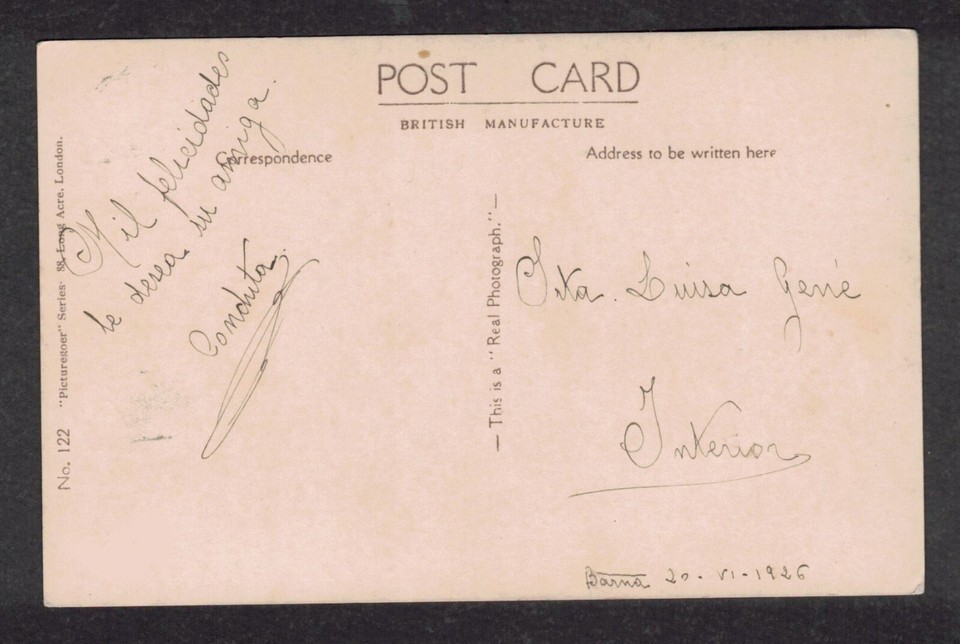 POST CARD
BRITISH MANUFACTURE
Correspondence
Address to be written here
Mil felicidades
le desea su amiga.
Conchita.
Srta. Luisa Gené
Interior
Barna 20-VI-1926
— This is a "Real Photograph." —
No. 122 "Picturegoer" Series. 88, Long Acre, London.